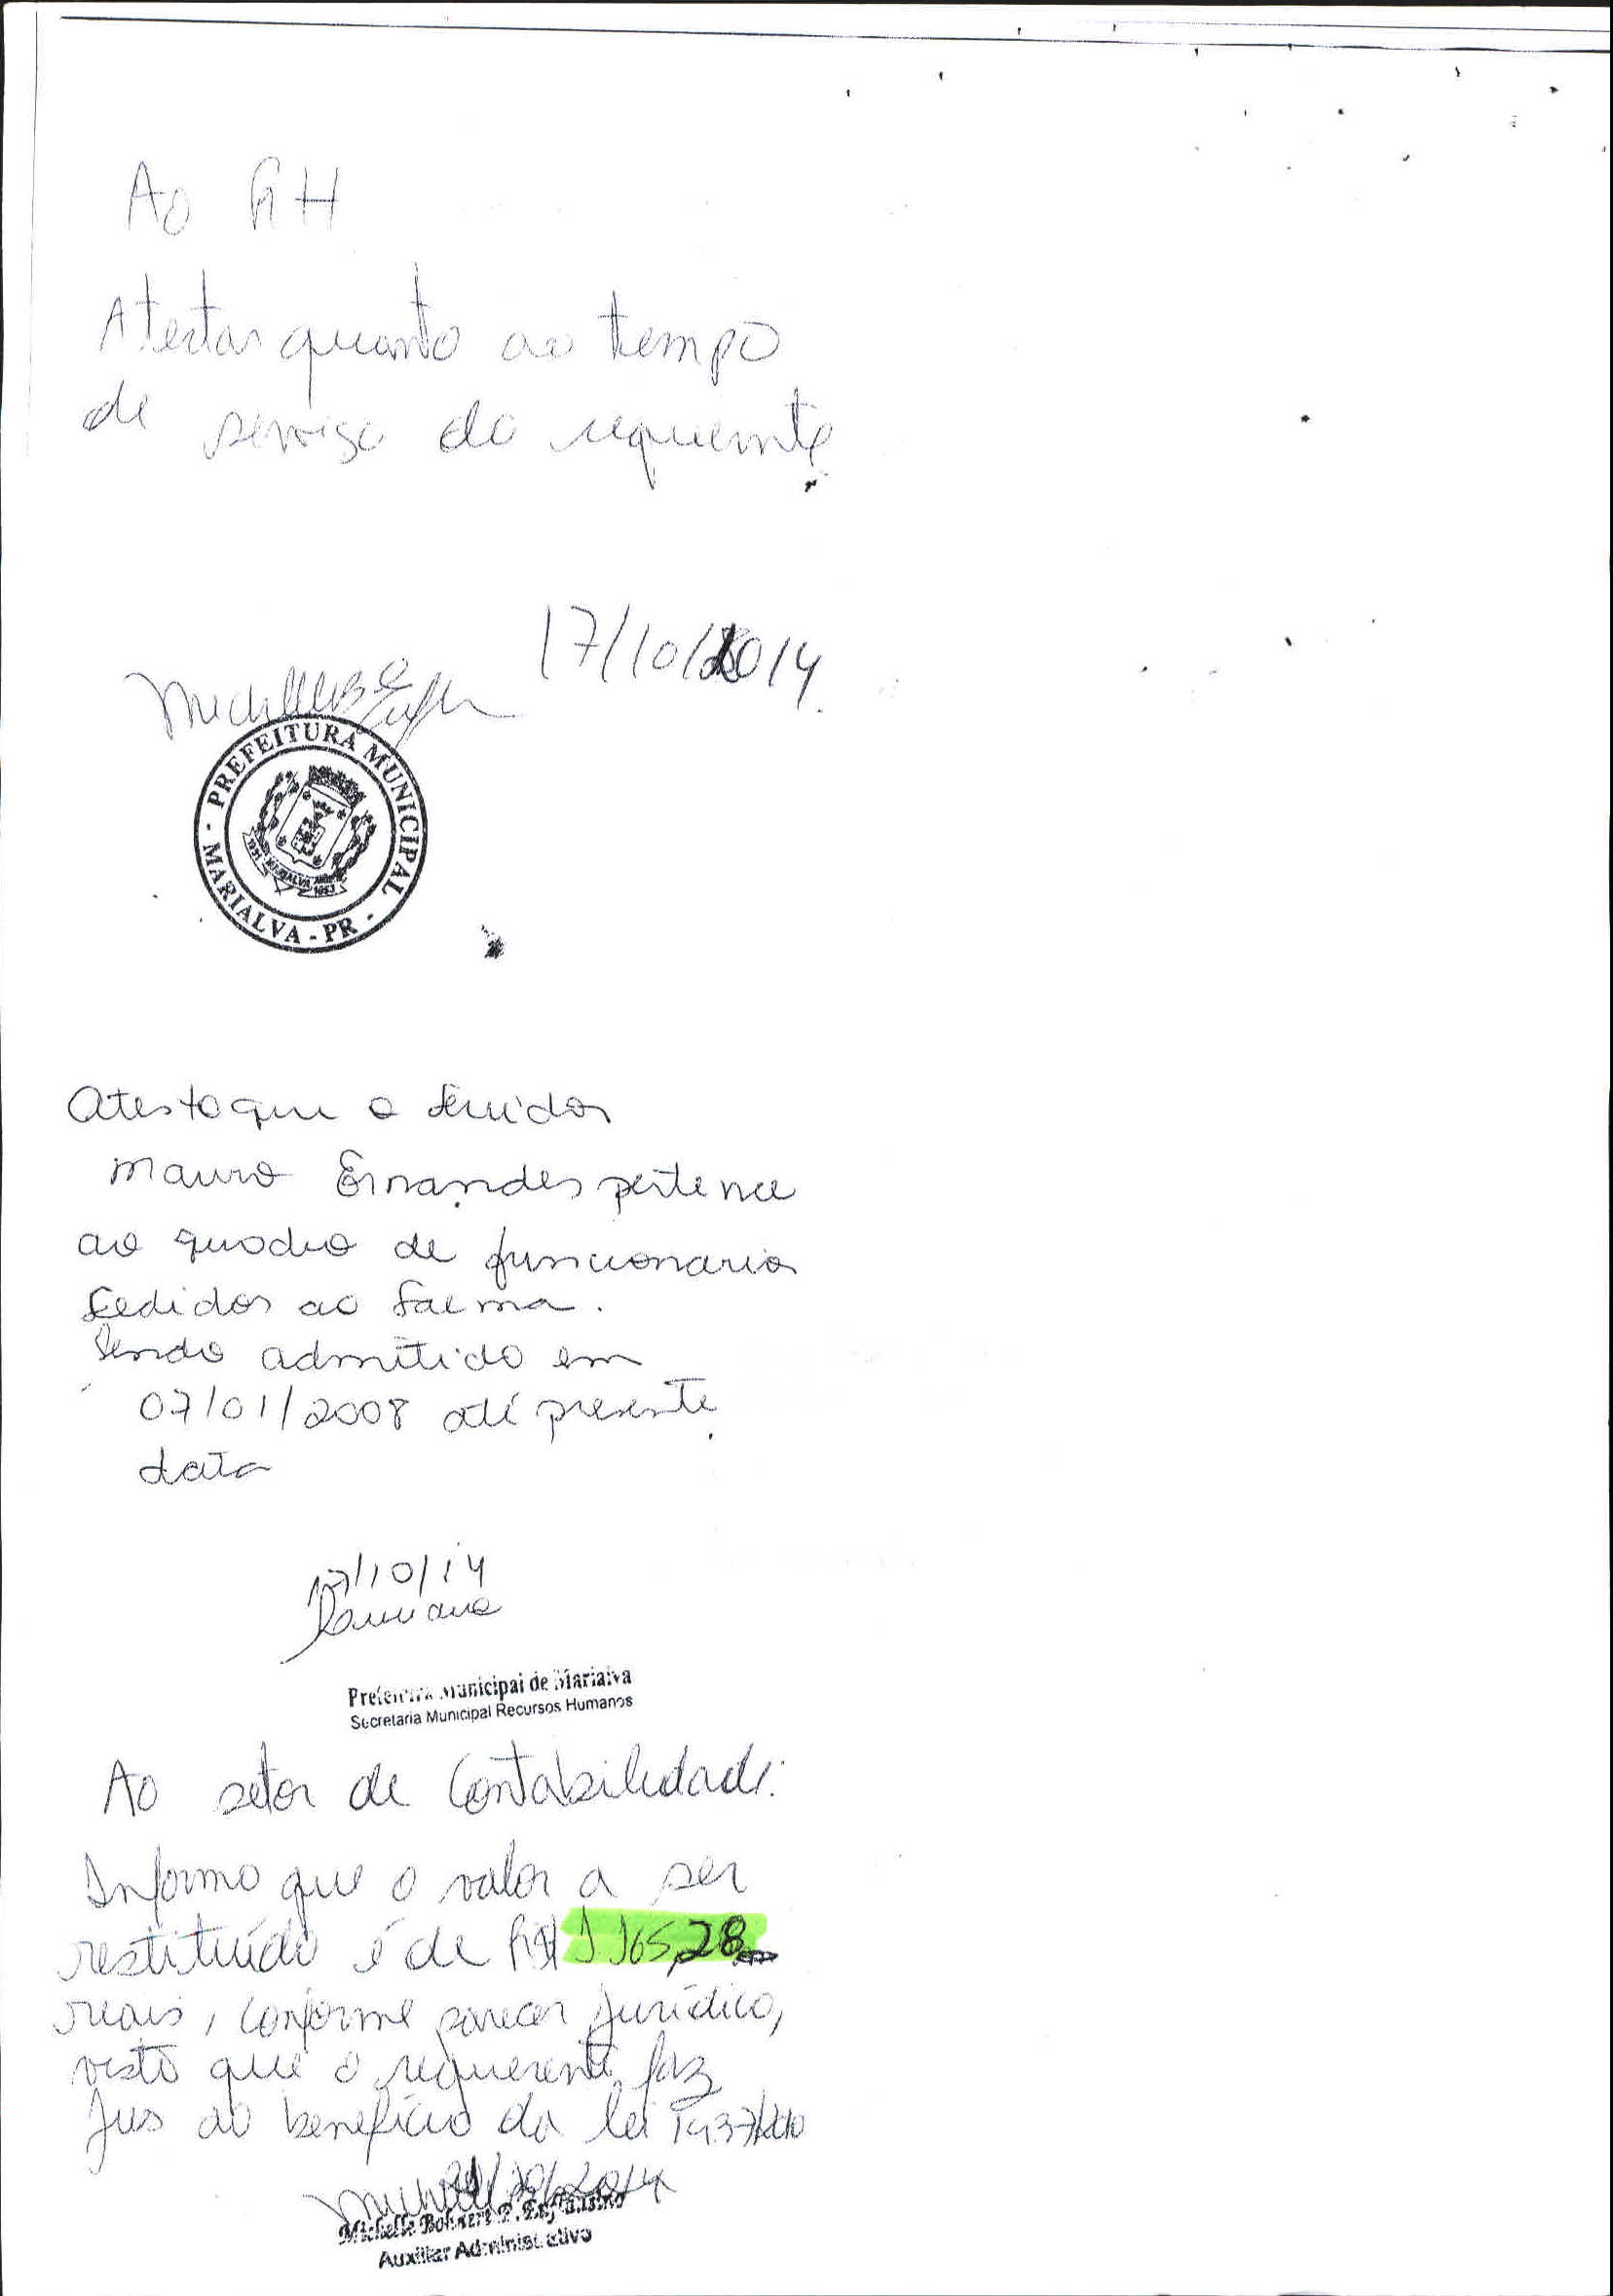 Ao RH
Atestar quanto ao tempo
de serviço do requerente
17/10/2014
PREFEITURA MUNICIPAL
MARIALVA - PR
Atesto que o servidor
Mauro Ernandes pertence
ao quadro de funcionarios
cedidos ao Saema.
Sendo admitido em
07/01/2008 até presente
data
17/10/14
Prefeitura Municipal de Marialva
Secretaria Municipal Recursos Humanos
Ao setor de Contabilidade:
Informo que o valor a ser
restituído é de R$ 1.165,28
reais, conforme parecer Jurídico,
visto que o requerente faz
jus ao benefício da lei
/10/2014
Michelle
Auxiliar Administrativo